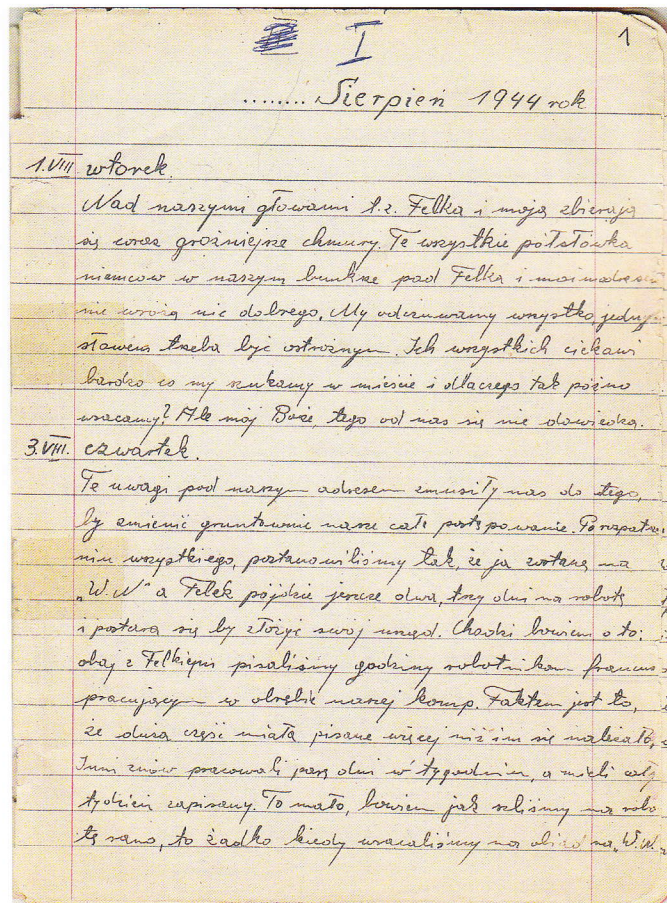 I
1
........ Sierpień 1944 rok
1.VIII wtorek.
Nad naszymi głowami t.z. Felka i moją zbierają
się coraz groźniejsze chmury. Te wszystkie półsłówka
niemców w naszym bunkrze pod Felka i moim adresem
nie wróżą nic dobrego. My odczuwamy wszystko, jednym
słowem trzeba być ostrożnym. Ich wszystkich ciekawi
bardzo co my szukamy w mieście i dlaczego tak późno
wracamy? Ale mój Boże, tego od nas się nie dowiedzą.
3.VIII. czwartek.
Te uwagi pod naszym adresem zmusiły nas do tego,
by zmienić gruntownie nasze całe postępowanie. Po rozpatrze-
niu wszystkiego, postanowiliśmy tak, że ja zostanę na
"W.N" a Felek pójdzie jeszcze dwa, trzy dni na robotę
i postara się by złożyć swój urząd. Chodzi bowiem o to;
obaj z Felkiem pisaliśmy godziny robotnikom francus
pracującym w obrębie naszej komp. Faktem jest to,
że duża część miała pisane więcej niż im się należało,
Inni znów pracowali parę dni w tygodniu, a mieli cały
tydzień zapisany. To mało, bowiem jak szliśmy na robo
tę rano, to żadko kiedy wracaliśmy na obiad na "W.N.